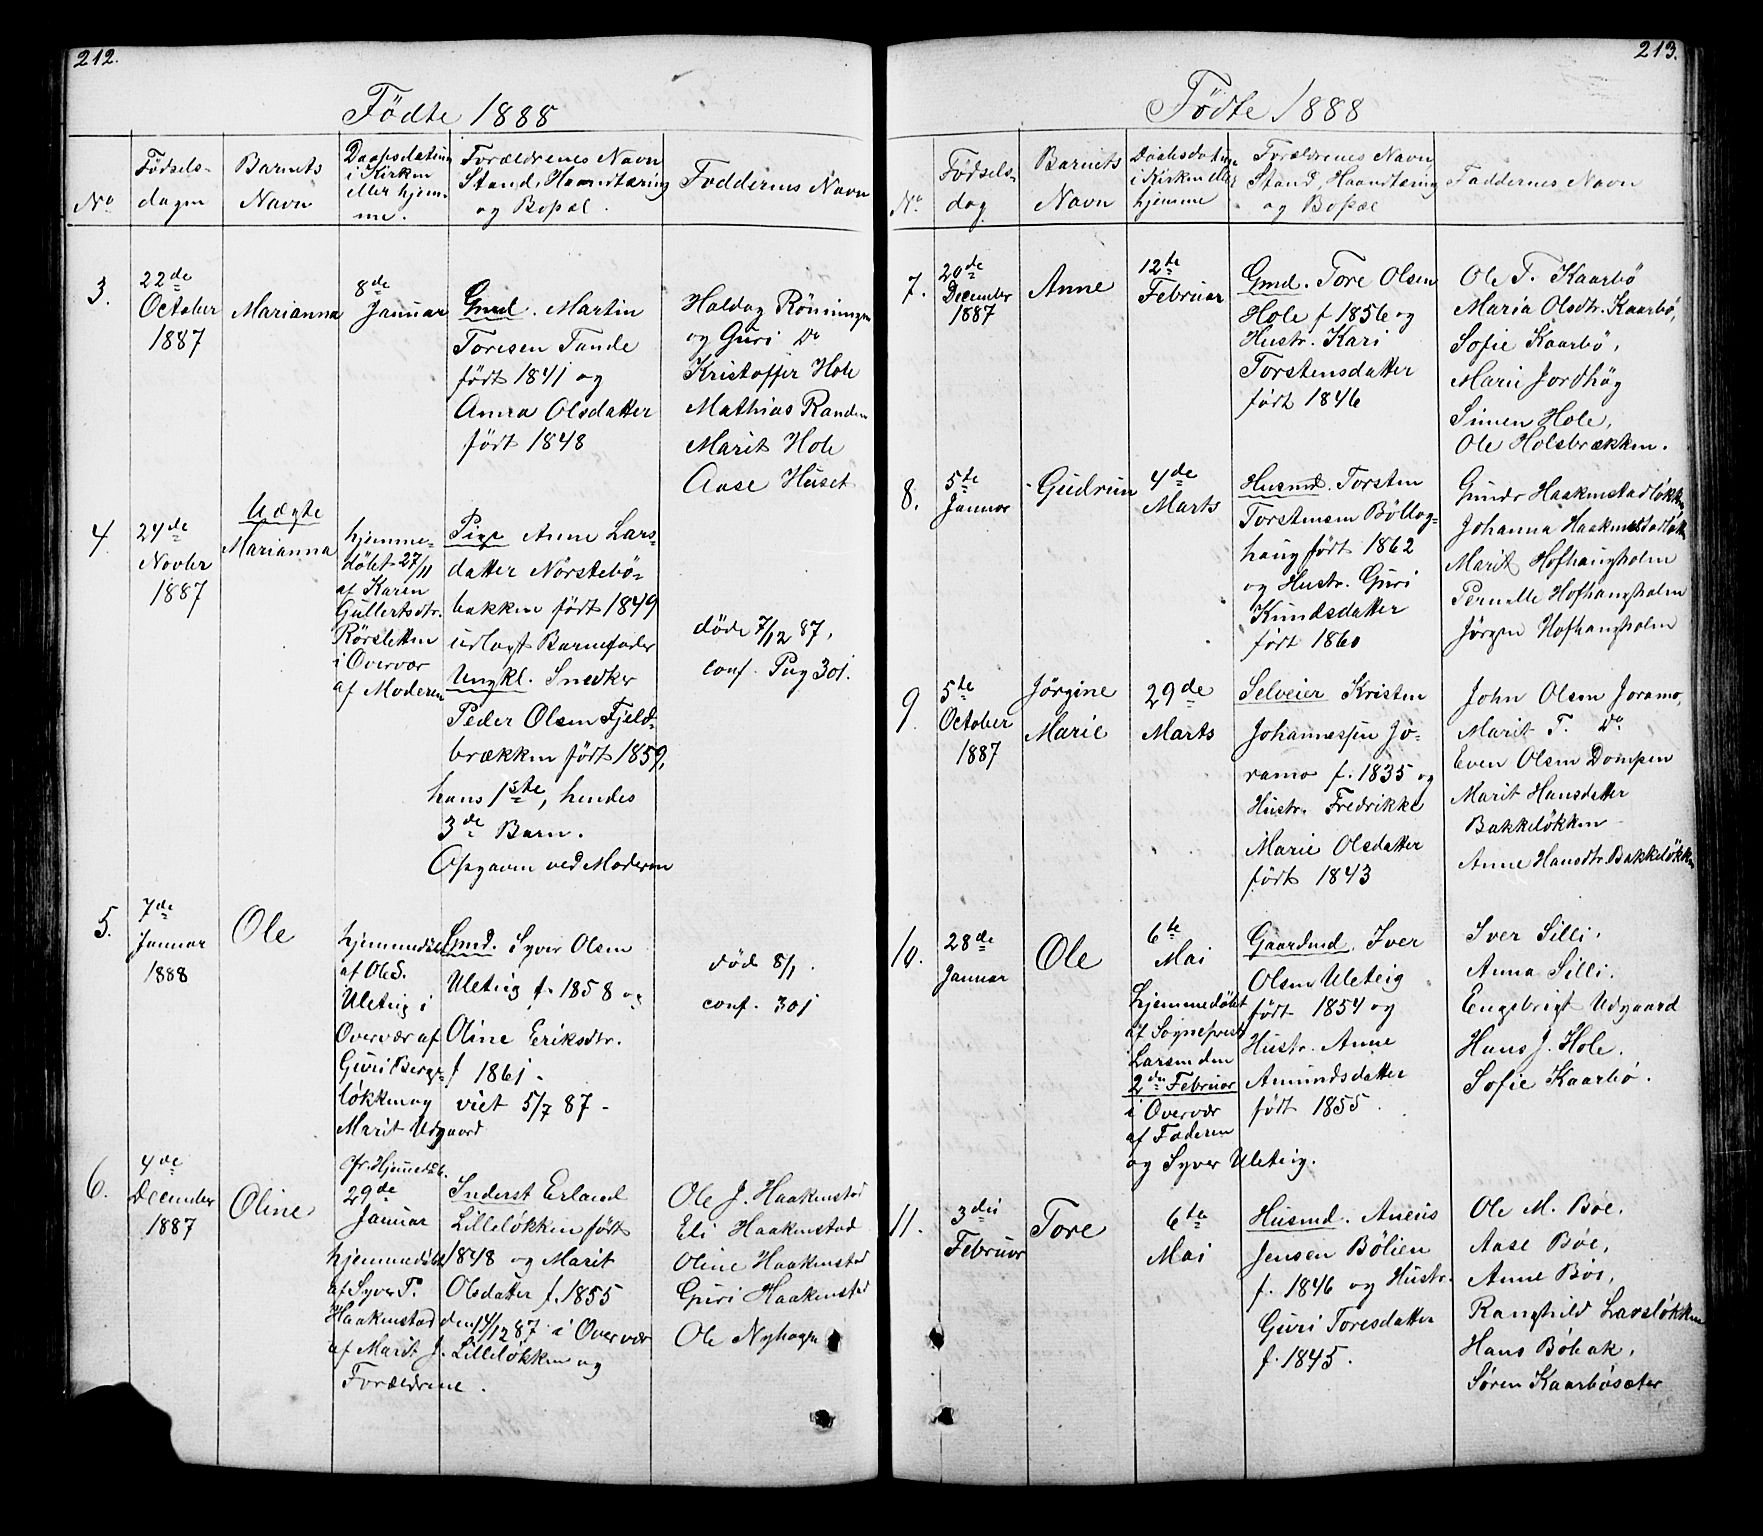 212.
Födte 1888
No
Födsels-
dagen
Barnets
Navn
Daabsdatum
i Kirken
eller hjem-
me.
Forældrenes Navn
Stand, Haandtæring
og Bopæl.
Faddernes Navn
3.
22de
October
1887
Marianna
8de
Januar
Gmd. Martin
Toresen Tande
født 1841 og
Anna Olsdatter
født 1848
Haldog Röningen
og Guri Do
Kristoffer Hole
Mathias Randen
Marit Hole
Aase Huset
4.
24de
Novber
1887
Uægte
Marianna
hjemme-
døbt 27/11
af Karen
Gulbertsdtr.
Rörsletten
i Overvær
af Moderen
Pige Anne Lars-
datter Nörstebö-
bakken født 1849
udlagt Barnefader
Ungkl. Snedker
Peder Olsen Fjeld-
brækken født 1859,
hans 1ste, hendes
3de Barn.
Opgaven ved Moderen
døde 7/12 87,
conf. Pag 301.
5.
7de
Januar
1888
Ole
hjemmedøbt
af Ole S.
Uleteig i
Overvær af
Guri Berge-
løkken og
Marit Udgaard
Gmd. Syver Olsen
Uleteig f. 1858 og
Oline Eriksdtr.
f 1861.
viet 5/7 87.
død 8/1.
conf. 301
6.
4de
December
1887
Oline
fr. Hjemmedb.
29de
Januar
hjemmedøbt
af Syver P.
Haakenstad den 14/12 87 i Overvær
af Marit J. Lilleløkken og
Forældrene.
Inderst Erland
Lilleløkken født
1848 og Marit
Olsdatter f. 1855
Ole J. Haakenstad
Eli Haakenstad
Oline Haakenstad
Guri Haakenstad
Ole Nyhagen
213.
Födte 1888
No
Födsels-
dag
Barnets
Navn
Daabsdatum
i Kirken eller
hjemme
Forældrenes Navn
Stand, Haandtæring
og Bopæl
Faddernes Navn
7.
20de
December
1887
Anne
12te
Februar
Gmd. Tore Olsen
Hole f 1856 og
Hustr. Kari
Torstensdatter
født 1846
Ole T. Kaarbö
Maria Olsdtr. Kaarbö,
Sofie Kaarbö,
Marie Jordhög
Simen Hole,
Ole Holsbrækken.
8.
5te
Januar
Gudrun
4de
Marts
Husmd. Torsten
Torstensen Böllog-
haug født 1862
og Hustr. Guri
Knudsdatter
født 1860
Haakenstadløkken
Johanna Haakenstadløkken
Marit Hofhaugholm
Pernille Hofhaugholm
Jörgen Hofhaugholm
9.
5te
October
1887
Jörgine
Marie
29de
Marts
Selveier Kristen
Johannessen Jo-
ramo f. 1835 og
Hustr. Fredrikke
Marie Olsdatter
født 1843
John Olsen Joramo,
Marit T. Do
Even Olsen Dompen
Marit Hansdatter
Bakkeløkken
Anne Hansdtr. Bakkeløkken
10.
28de
Januar
Ole
6te
Mai
hjemmedøbt
af Sogneprest
Larsen den
2den Februar
i Overvær
af Faderen
og Syver Uleteig.
Gaardmd. Iver
Olsen Uleteig
født 1854 og
Hustr. Anne
Amundsdatter
født 1855.
Iver Silli,
Anna Silli.
Engebrigt Udgaard
Hans J. Hole.
Sofie Kaarbö.
11.
3die
Februar
Tore
6te
Mai
Husmd. Aneus
Jensen Bölien
f. 1846 og Hustr.
Guri Toresdatter
f. 1845.
Ole M. Böe,
Aase Böe,
Anne Böe,
Ranghild Larsløkken
Hans Böbak,
Sören Kaarbösæter